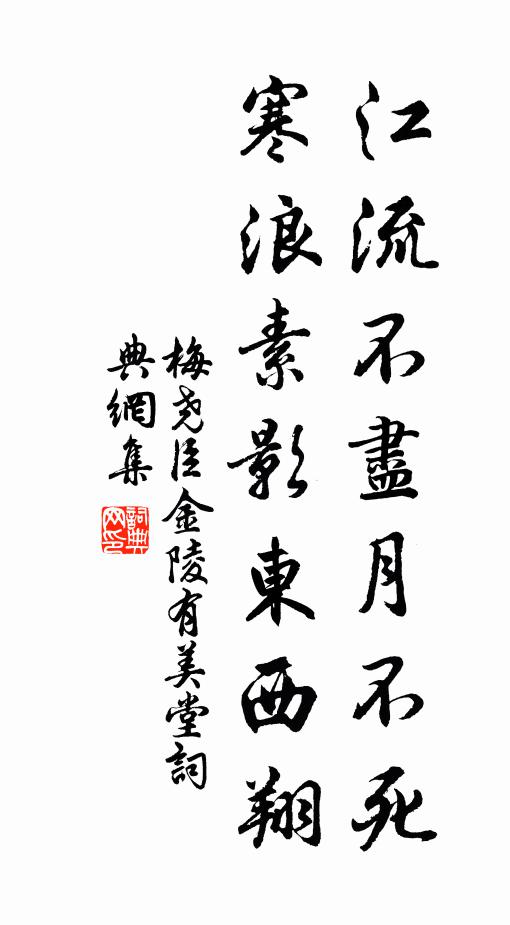 江流不盡月不死
寒浪素影東西翔
梅尧臣金陵有美堂詞
典網集
詞典网印